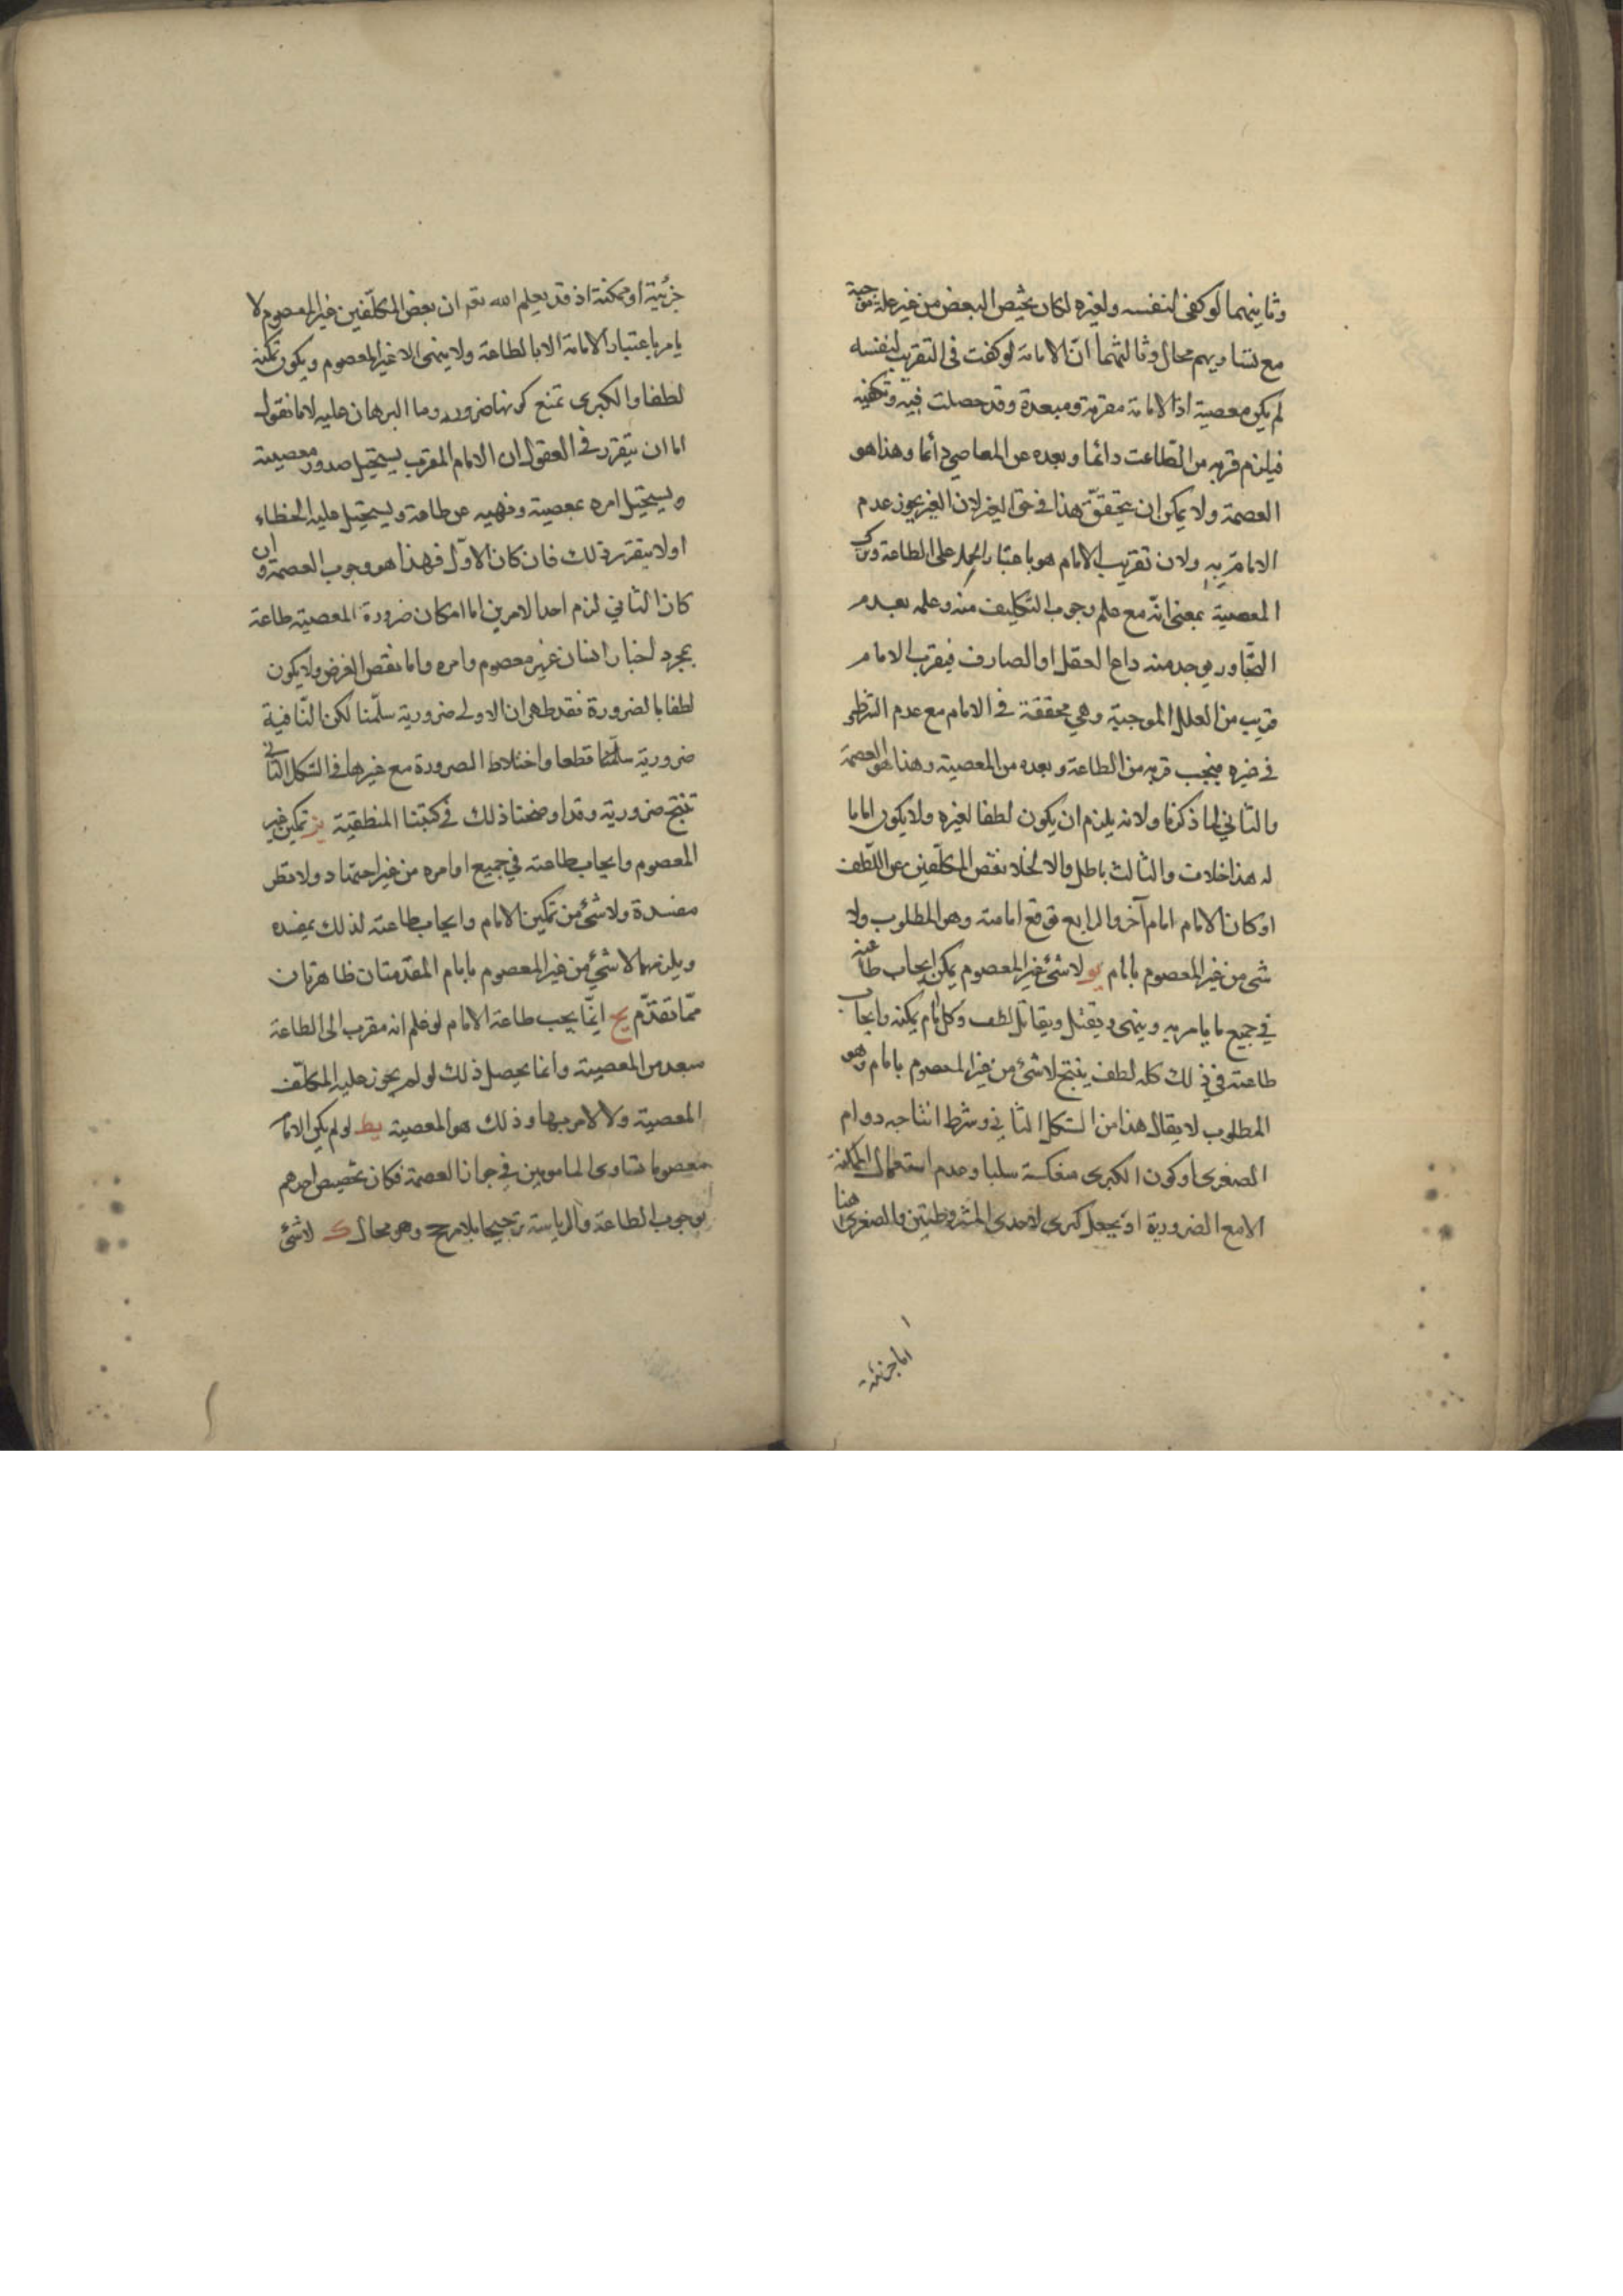 وثانيهما لو كفى لنفسه ولغيره لكان تخصيص البعض من غير علة موجبة
مع تساويهم محال وثالثهما ان الامامة لو كفت فى التقريب لنفسه
لم يكن معصية اذ الامامة مقربة ومبعدة وقد حصلت فيه وتكفيه
فيلزم قربه من الطاعت دائما وبعده عن المعاصي دائما وهذا هو
العصمة ولا يمكن ان يتحقق هذا في حق الغير لان الغير يجوز عدم
الامام به ولان تقريب الامام هو باعتبار الحمل على الطاعة وترك
المعصية بمعنى انه مع علم وجوب التكليف منه وعلمه بعدم
الصادر يوجد منه داع العقل او الصارف فيقرب الامام
قريب من العلل الموجبة وهي محققة في الامام مع عدم النظر
في غيره فيجب قربه من الطاعة وبعده من المعصية وهذا هو العصمة
والثاني لما ذكرنا ولانه يلزم ان يكون لطفا لغيره ولا يكون اماما
له هذا خلف والثالث باطل والا لخلا بعض المكلفين عن اللطف
او كان الامام امام آخر والرابع توقع امامته وهو المطلوب ولا
شى من غير المعصوم بامام يو لا شئ غير المعصوم يمكن ايجاب طاعته
في جميع ما يامر به وينهى ويقتل ويقاتل لطف وكل امام يمكنه وايجاب
طاعته في ذلك كله لطف ينتج لا شئ من غير المعصوم بامام وهو
المطلوب لا يقال هذا من الشكل الثاني وشرط انتاجه دوام
الصغرى او كون الكبرى منعكسة سلبا وعدم استعمال الممكنة
الا مع الضرورية او يجعل كبرى لاحدى المشروطتين والصغرى هنا
اما جزئية
جزئية او ممكنة اذ قد يعلم الله تعم ان بعض المكلفين غير المعصوم لا
يامر باعتبار الامامة الا بالطاعة ولا ينهى الا غير المعصوم ويكون تمكنه
لطفا والكبرى تمنع كونها ضرورية وما البرهان عليه لاما نقول
اما ان يتقرر في العقول ان الامام المقرب يستحيل صدور معصيته
ويستحيل امره بمعصية ونهيه عن طاعة ويستحيل عليه الخطاء
اولا يتقرر ذلك فان كان الاول فهذا هو وجوب العصمة وان
كان الثاني لزم احد الامرين اما امكان ضرورة المعصية طاعة
بمجرد اخبار انسان غير معصوم وامره واما نقض الغرض ولا يكون
لطفا بالضرورة فقد ظهر ان الاولى ضرورية سلمنا لكن النافية
ضرورية سلمنا قطعا واختلاط الضرورة مع غيرها في الشكل الثاني
تنتج ضرورية وقد اوضحنا ذلك في كتبنا المنطقية يز تمكين غير
المعصوم وايجاب طاعته في جميع اوامره من غير اجتهاد ولا نظر
مفسدة ولا شئ من تمكين الامام وايجاب طاعته لذلك بمفسده
ويلزمهما لا شئ من غير المعصوم بامام المقدمتان ظاهرتان
مما تقدم يح انما يجب طاعة الامام لو علم انه مقرب الى الطاعة
مبعد من المعصية وانما يحصل ذلك لو لم يجوز عليه المكلف
المعصية ولا الامر بها وذلك هو المعصية يط لو لم يكن الامام
معصوما تساوى المامومين في جواز العصمة فكان تخصيص احدهم
بوجوب الطاعة والرياسة ترجيحا بلا مرجح وهو محال ك لا شئ